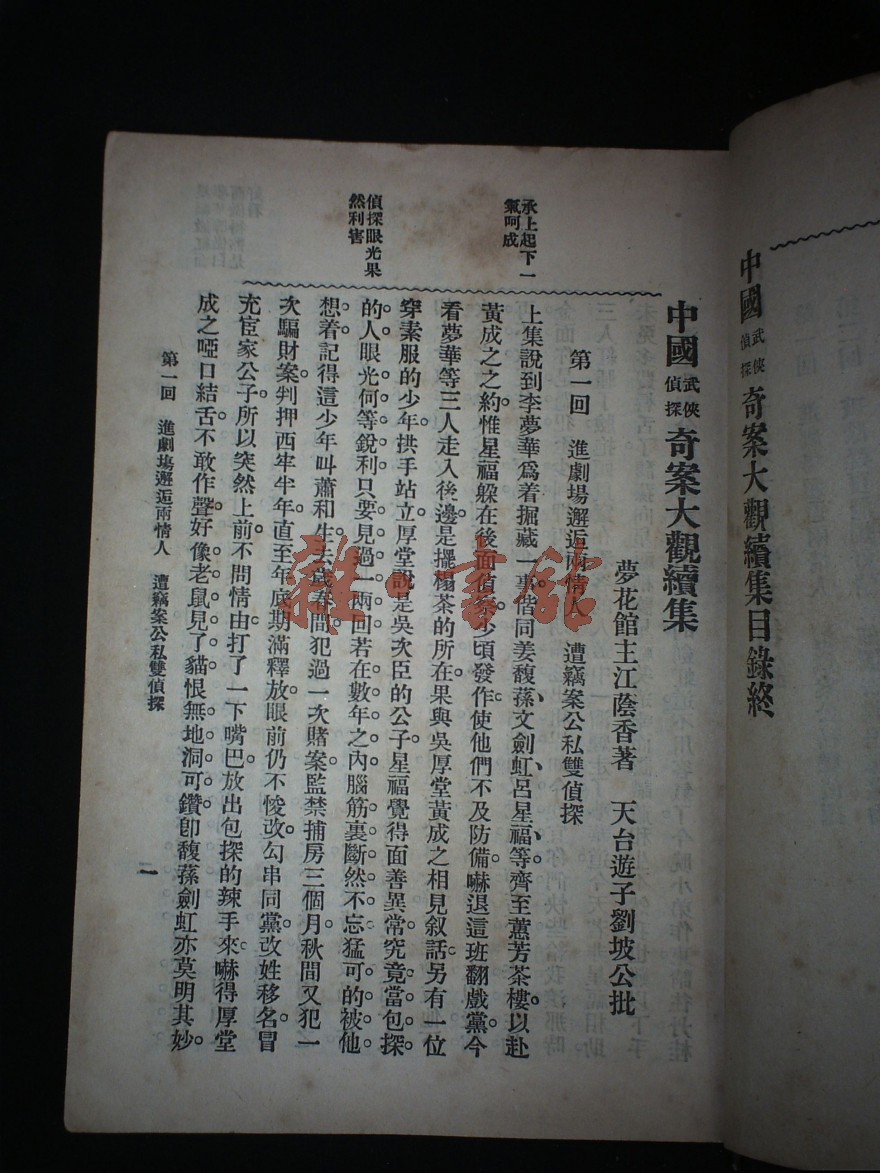 中國武俠偵探奇案大觀續集目錄終
中國武俠偵探奇案大觀續集
夢花館主江蔭香著 天台遊子劉坡公批
第一回 進劇場邂逅兩情人 遭竊案公私雙偵探
承上起下一
氣呵成
上集說到李夢華爲着掘藏一事。偕同姜馥蓀、文劍虹、呂星福、等齊至蕙芳茶樓。以赴
黃成之之約。惟星福躲在後面偵察。少頃發作。使他們不及防備。嚇退這班翻戲黨。今
看夢華等三人走入後邊。是擺榻茶的所在。果與吳厚堂黃成之相見叙話。另有一位
穿素服的少年。拱手站立。厚堂說是吳次臣的公子。星福覺得面善異常。究竟當包探
偵探眼光果
然利害
的人。眼光何等銳利。只要見過一兩回。若在數年之內。腦筋裏斷然不忘。猛可的被他
想着。記得這少年叫蕭和生。去歲春間犯過一次賭案。監禁捕房三個月。秋間又犯一
次騙財案。判押西牢半年。直至年底期滿釋放。眼前仍不悛改。勾串同黨。改姓移名。冒
充宦家公子。所以突然上前。不問情由。打了一下嘴巴。放出包探的辣手來。嚇得厚堂
成之啞口結舌。不敢作聲。好像老鼠見了貓。恨無地洞可鑽。卽馥蓀劍虹亦莫明其妙。
第一回 進劇場邂逅兩情人 遭竊案公私雙偵探
一
雜書館